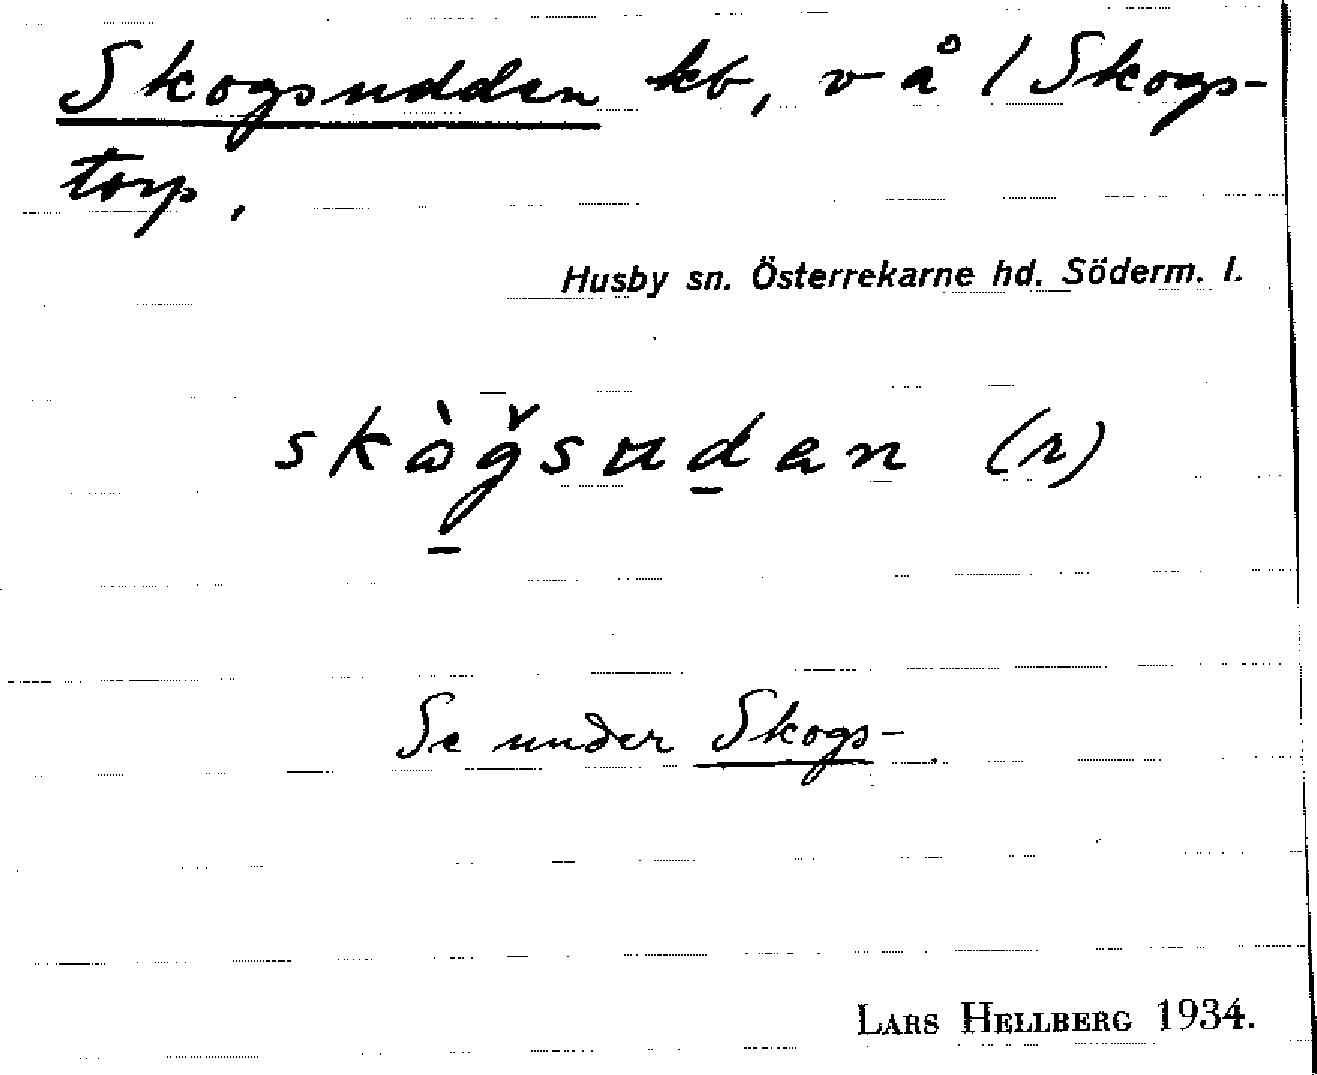 Skogsudden kb, v å 1 Skogs-
torp,
Husby sn. Österrekarne hd. Söderm. l.
skògsudan (r)
Se under Skogs-.
LARS HELLBERG 1934.